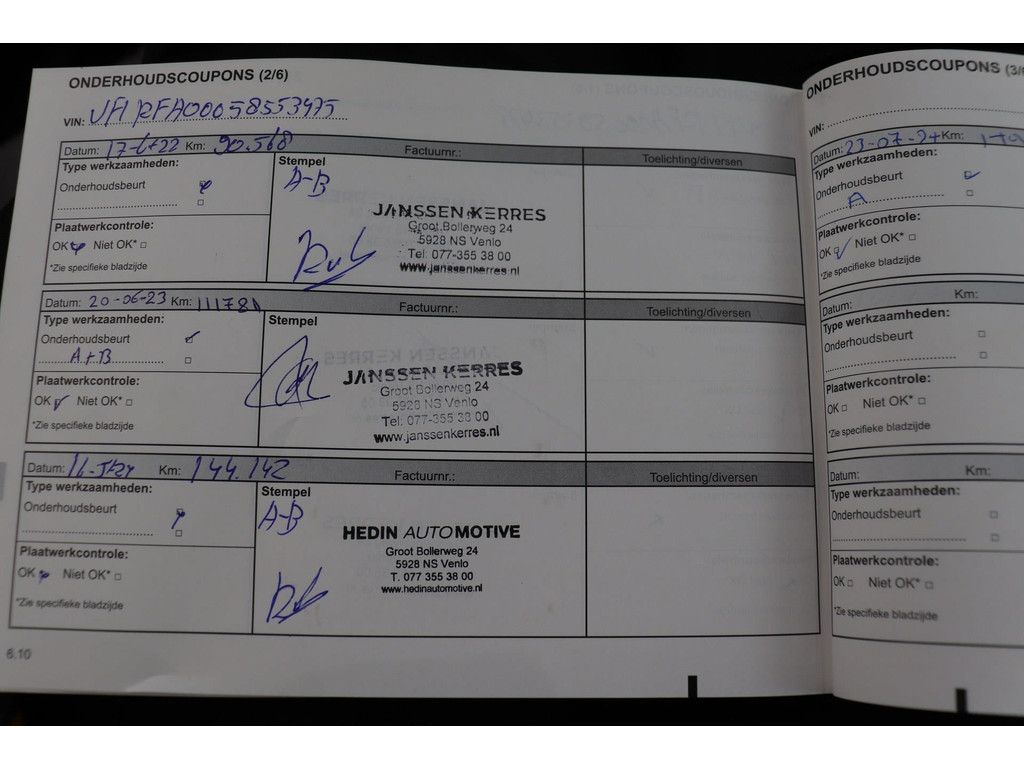 ONDERHOUDSCOUPONS (2/6)
VIN: VF1RFA00058553475
Datum: 17-6-22 Km: 90.568 Factuurnr.: Toelichting/diversen
Type werkzaamheden: Stempel
Onderhoudsbeurt A-B
Plaatwerkcontrole:
OK Niet OK*
*Zie specifieke bladzijde
JANSSEN KERRES
Groot Bollerweg 24
5928 NS Venlo
Tel: 077-355 38 00
www.janssenkerres.nl
Datum: 20-06-23 Km: Factuurnr.: Toelichting/diversen
Type werkzaamheden: Stempel
Onderhoudsbeurt
A+B
Plaatwerkcontrole:
OK Niet OK*
*Zie specifieke bladzijde
JANSSEN KERRES
Groot Bollerweg 24
5928 NS Venlo
Tel: 077-355 38 00
www.janssenkerres.nl
Datum: Km: 144.142 Factuurnr.: Toelichting/diversen
Type werkzaamheden: Stempel
Onderhoudsbeurt A-B
Plaatwerkcontrole:
OK Niet OK*
*Zie specifieke bladzijde
HEDIN AUTOMOTIVE
Groot Bollerweg 24
5928 NS Venlo
T. 077 355 38 00
www.hedinautomotive.nl
6.10
ONDERHOUDSCOUPONS (3/6
VIN:
Datum: 23-07-24 Km:
Type werkzaamheden:
Onderhoudsbeurt
A
Plaatwerkcontrole:
OK Niet OK*
*Zie specifieke bladzijde
Datum: Km:
Type werkzaamheden:
Onderhoudsbeurt
Plaatwerkcontrole:
OK Niet OK*
*Zie specifieke bladzijde
Datum: Km:
Type werkzaamheden:
Onderhoudsbeurt
Plaatwerkcontrole:
OK Niet OK*
*Zie specifieke bladzijde